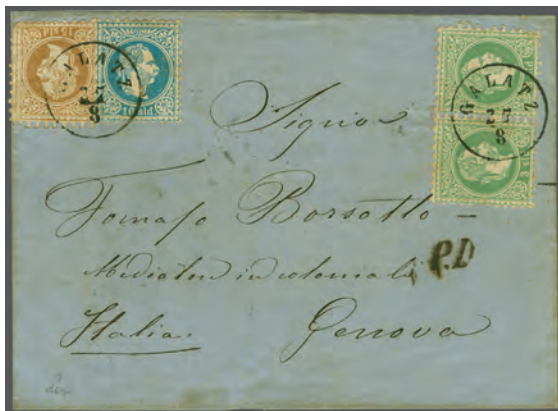 GALATZ
27
8
10 sld.
GALATZ
27
8
Signor
Tomaso Borsotto –
Mediatore in coloniali
P.D
Italia. Genova